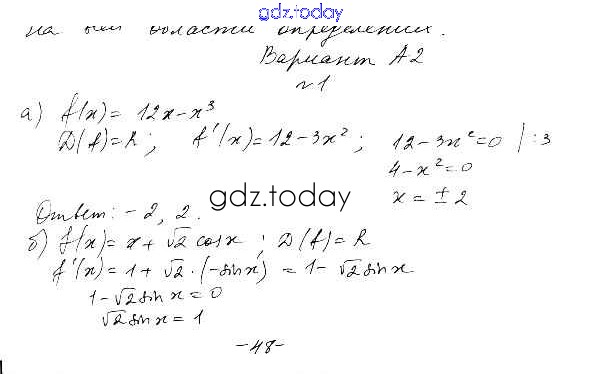 gdz.today
на всей области определения.
Вариант А2
№1
а) f(x) = 12x - x³
D(f) = R; f'(x) = 12 - 3x²; 12 - 3x² = 0 | :3
4 - x² = 0
x = ± 2
gdz.today
Ответ: -2, 2.
б) f(x) = x + √2 cosx; D(f) = R
f'(x) = 1 + √2 · (-sinx) = 1 - √2 sinx
1 - √2 sinx = 0
√2 sinx = 1
-48-